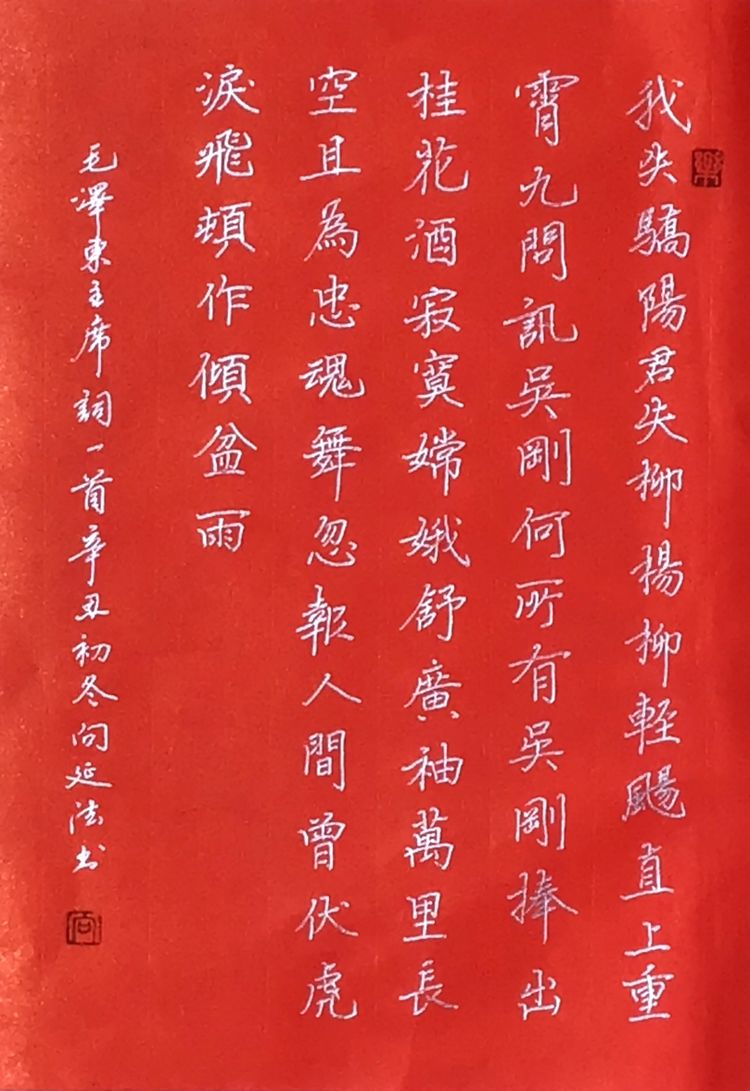 我失驕陽君失柳楊柳輕颺直上重
霄九問訊吳剛何所有吳剛捧出
桂花酒寂寞嫦娥舒廣袖萬里長
空且為忠魂舞忽報人間曾伏虎
淚飛頓作傾盆雨
毛澤東主席詞一首辛丑初冬向延法书
向